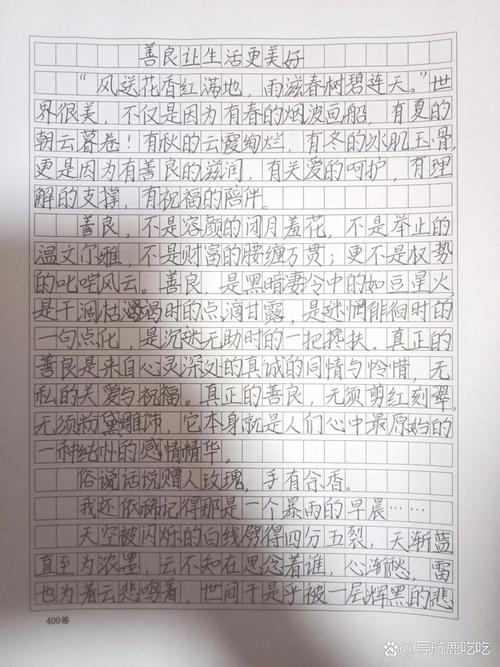 善良让生活更美好
“风送花香红满地，雨滋春树碧连天。”世
界很美，不仅是因为有春的烟波画船，有夏的
朝云暮卷！有秋的云霞绚烂，有冬的冰肌玉骨，
更是因为有善良的滋润，有关爱的呵护，有理
解的支撑，有祝福的陪伴。
善良，不是容颜的闭月羞花，不是举止的
温文尔雅，不是财富的腰缠万贯；更不是权势
的叱咤风云。善良，是黑暗凄冷中的如豆星火，
是干涸枯渴时的点滴甘露，是迷惘徘徊时的
一句点化，是沉迷无助时的一把搀扶。真正的
善良是来自心灵深处的真诚的同情与怜惜，无
私的关爱与祝福。真正的善良，无须剪红刻翠，
无须粉黛雕饰，它本身就是人们心中最原始的
一种纯朴的感情精华。
俗说话说赠人玫瑰，手有余香。
我还依稀记得那是一个暴雨的早晨……
天空被闪烁的白线劈得四分五裂，天渐蓝
直至为浓墨，云不知在思念着谁，心渐愁，雷
也为着云悲鸣着，世间于是乎被一层辉黑的悲
400格
@导航鹿吃吃